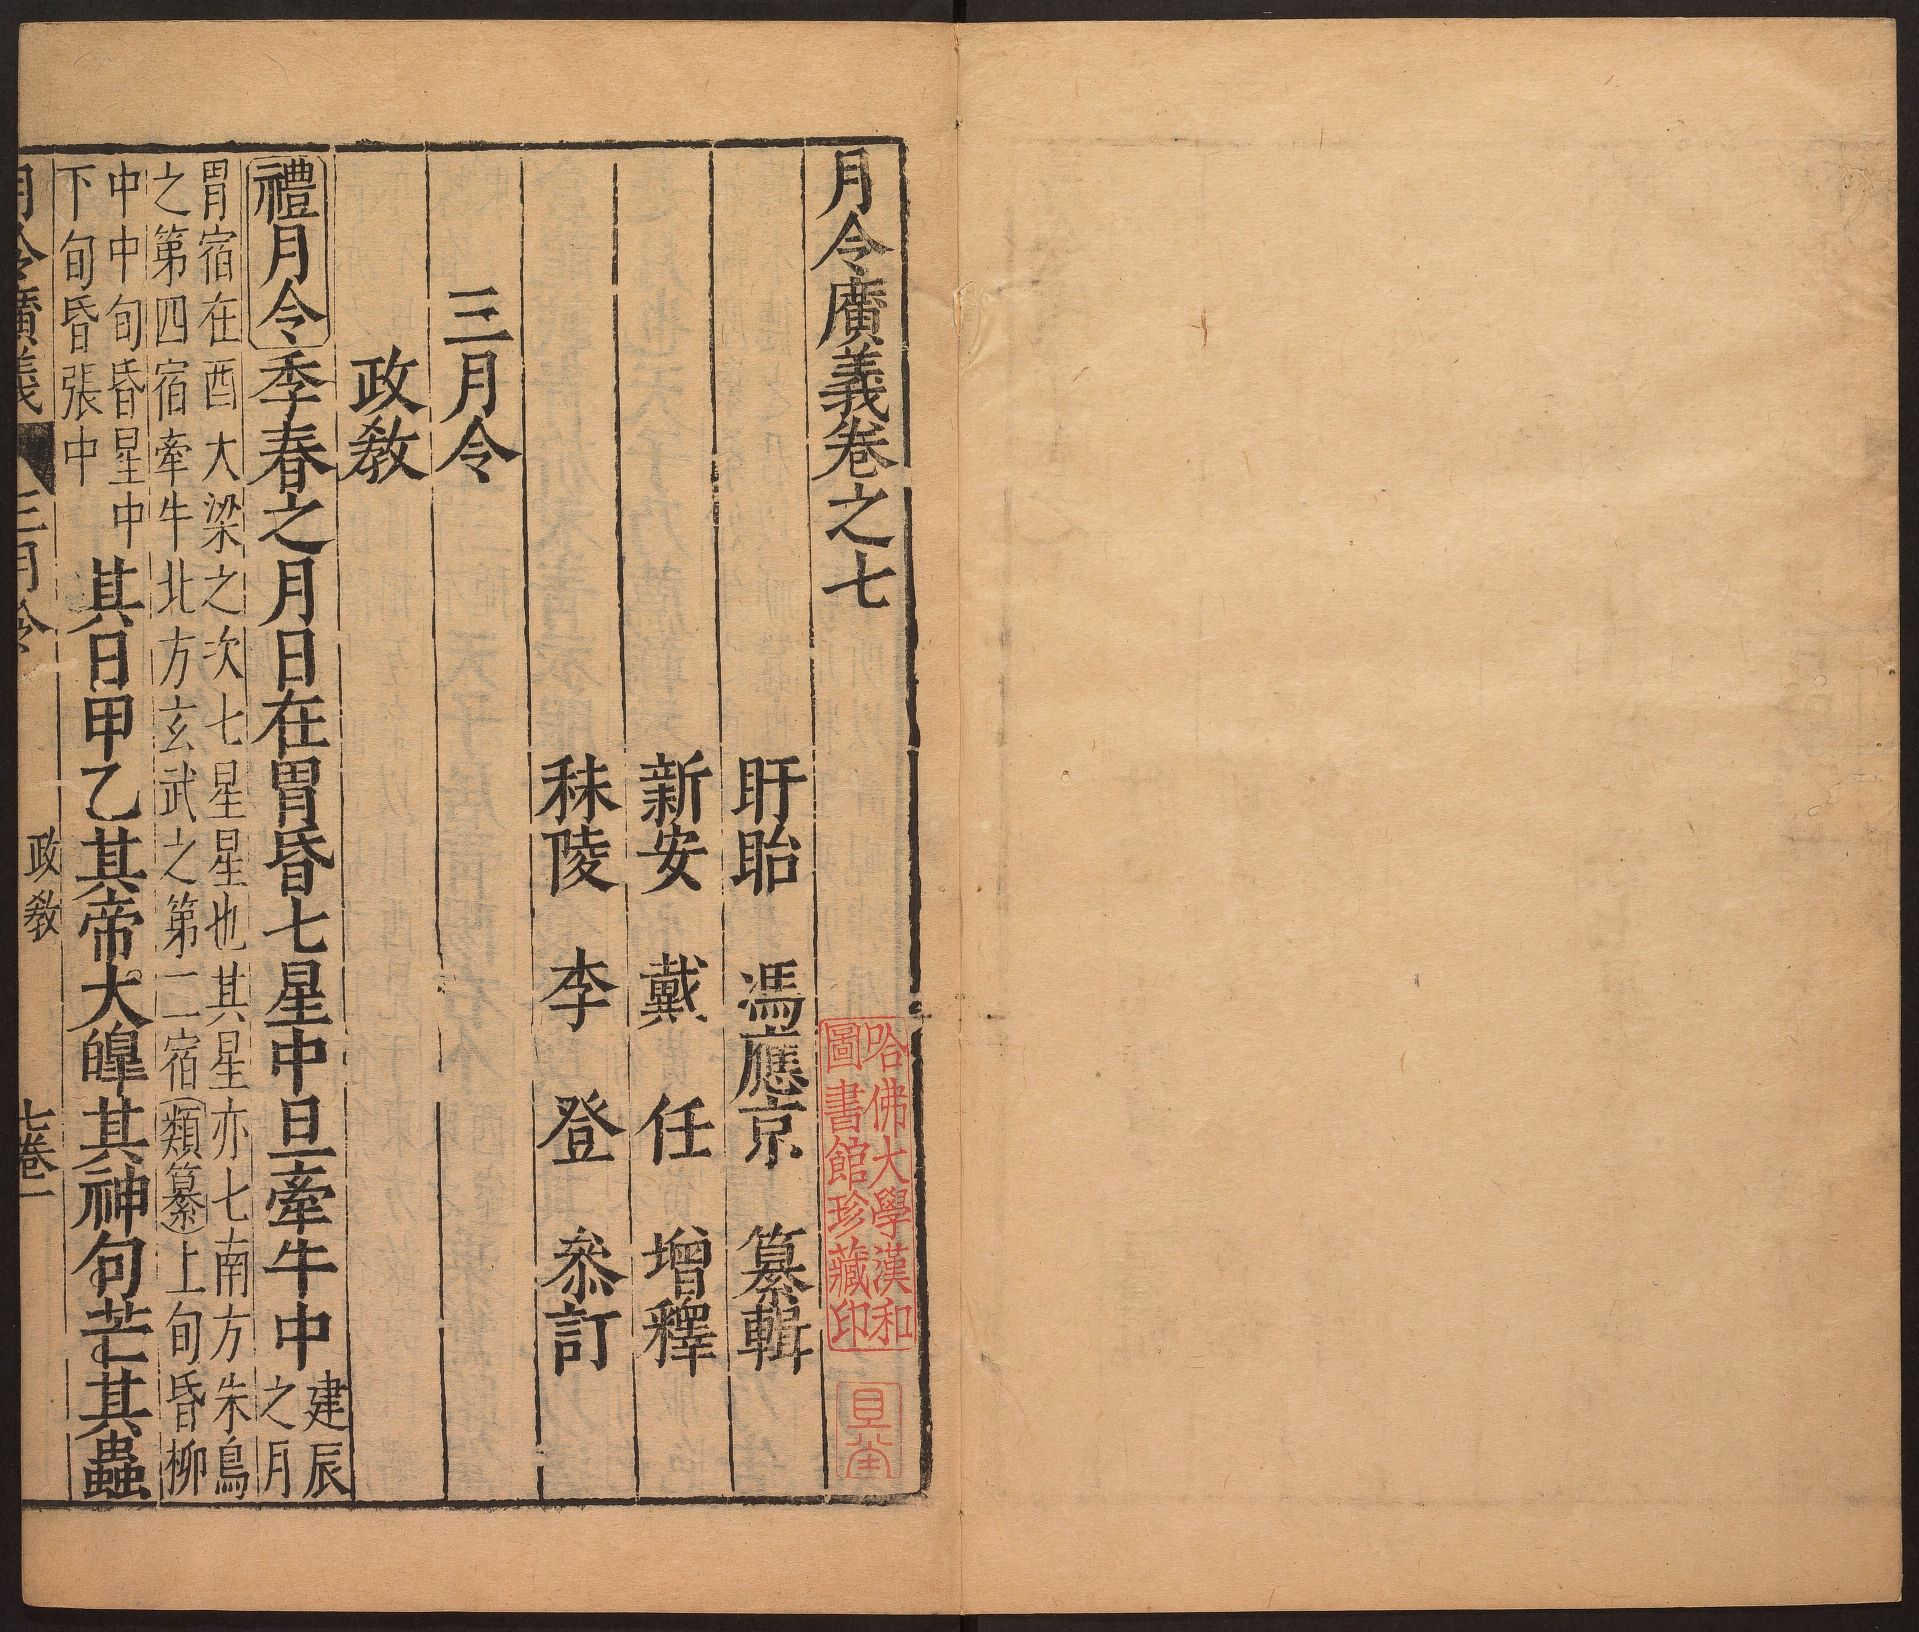 月令廣義卷之七
盱眙 馮應京 纂輯
新安 戴任 增釋
秣陵 李登 叅訂
三月令
政教
禮月令季春之月日在胃昏七星中旦牽牛中建辰
之月
胃宿在酉大梁之次七星星也其星亦七南方朱鳥
之第四宿牽牛北方玄武之第二宿類纂上旬昏柳
中中旬昏星中
下旬昏張中
其日甲乙其帝大皥其神句芒其蟲
月令廣義 三月令 政教 七卷一
哈佛大學漢和
圖書館珍藏印